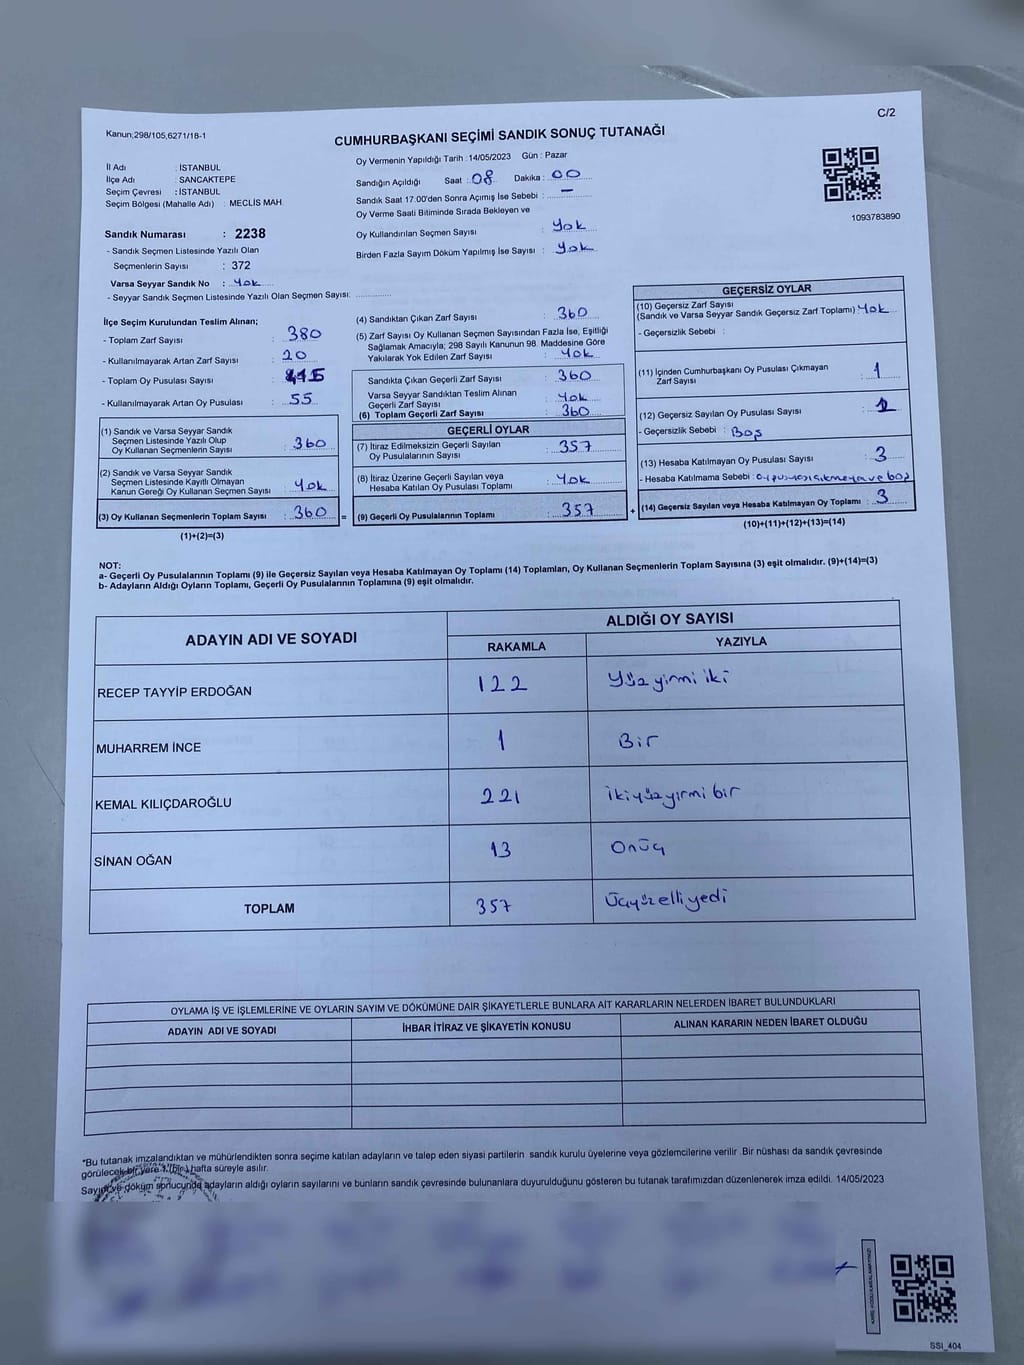 C/2
Kanun;298/105,6271/18-1
CUMHURBAŞKANI SEÇİMİ SANDIK SONUÇ TUTANAĞI
İl Adı : İSTANBUL
İlçe Adı : SANCAKTEPE
Seçim Çevresi : İSTANBUL
Seçim Bölgesi (Mahalle Adı) : MECLİS MAH.
Oy Vermenin Yapıldığı Tarih : 14/05/2023 Gün : Pazar
Sandığın Açıldığı Saat : 08 Dakika : 00
Sandık Saat 17:00'den Sonra Açımış İse Sebebi : —
Oy Verme Saati Bitiminde Sırada Bekleyen ve
Oy Kullandırılan Seçmen Sayısı : Yok
Birden Fazla Sayım Döküm Yapılmış İse Sayısı : Yok
1093783890
Sandık Numarası : 2238
- Sandık Seçmen Listesinde Yazılı Olan
Seçmenlerin Sayısı : 372
Varsa Seyyar Sandık No : Yok
- Seyyar Sandık Seçmen Listesinde Yazılı Olan Seçmen Sayısı:
İlçe Seçim Kurulundan Teslim Alınan;
- Toplam Zarf Sayısı : 380
- Kullanılmayarak Artan Zarf Sayısı : 20
- Toplam Oy Pusulası Sayısı :
- Kullanılmayarak Artan Oy Pusulası : 55
(1) Sandık ve Varsa Seyyar Sandık
Seçmen Listesinde Yazılı Olup
Oy Kullanan Seçmenlerin Sayısı : 360
(2) Sandık ve Varsa Seyyar Sandık
Seçmen Listesinde Kayıtlı Olmayan
Kanun Gereği Oy Kullanan Seçmen Sayısı : Yok
(3) Oy Kullanan Seçmenlerin Toplam Sayısı : 360 =
(1)+(2)=(3)
(4) Sandıktan Çıkan Zarf Sayısı : 360
(5) Zarf Sayısı Oy Kullanan Seçmen Sayısından Fazla İse, Eşitliği
Sağlamak Amacıyla; 298 Sayılı Kanunun 98. Maddesine Göre
Yakılarak Yok Edilen Zarf Sayısı : Yok
Sandıkta Çıkan Geçerli Zarf Sayısı : 360
Varsa Seyyar Sandıktan Teslim Alınan
Geçerli Zarf Sayısı : Yok
(6) Toplam Geçerli Zarf Sayısı : 360
GEÇERLİ OYLAR
(7) İtiraz Edilmeksizin Geçerli Sayılan
Oy Pusulalarının Sayısı : 357
(8) İtiraz Üzerine Geçerli Sayılan veya
Hesaba Katılan Oy Pusulası Toplamı : Yok
(9) Geçerli Oy Pusulalarının Toplamı : 357 +
GEÇERSİZ OYLAR
(10) Geçersiz Zarf Sayısı
(Sandık ve Varsa Seyyar Sandık Geçersiz Zarf Toplamı) : Yok
- Geçersizlik Sebebi :
(11) İçinden Cumhurbaşkanı Oy Pusulası Çıkmayan
Zarf Sayısı : 1
(12) Geçersiz Sayılan Oy Pusulası Sayısı :
- Geçersizlik Sebebi : Boş
(13) Hesaba Katılmayan Oy Pusulası Sayısı : 3
- Hesaba Katılmama Sebebi : ve boş
(14) Geçersiz Sayılan veya Hesaba Katılmayan Oy Toplamı : 3
(10)+(11)+(12)+(13)=(14)
NOT:
a- Geçerli Oy Pusulalarının Toplamı (9) ile Geçersiz Sayılan veya Hesaba Katılmayan Oy Toplamı (14) Toplamları, Oy Kullanan Seçmenlerin Toplam Sayısına (3) eşit olmalıdır. (9)+(14)=(3)
b- Adayların Aldığı Oyların Toplamı, Geçerli Oy Pusulalarının Toplamına (9) eşit olmalıdır.
ADAYIN ADI VE SOYADI
ALDIĞI OY SAYISI
RAKAMLA YAZIYLA
RECEP TAYYİP ERDOĞAN 122 Yüzyirmi iki
MUHARREM İNCE 1 Bir
KEMAL KILIÇDAROĞLU 221 ikiyüzyirmi bir
SİNAN OĞAN 13 Onüç
TOPLAM 357 Üçyüzelliyedi
OYLAMA İŞ VE İŞLEMLERİNE VE OYLARIN SAYIM VE DÖKÜMÜNE DAİR ŞİKAYETLERLE BUNLARA AİT KARARLARIN NELERDEN İBARET BULUNDUKLARI
ADAYIN ADI VE SOYADI İHBAR İTİRAZ VE ŞİKAYETİN KONUSU ALINAN KARARIN NEDEN İBARET OLDUĞU
*Bu tutanak imzalandıktan ve mühürlendikten sonra seçime katılan adayların ve talep eden siyasi partilerin sandık kurulu üyelerine veya gözlemcilerine verilir. Bir nüshası da sandık çevresinde
görülecek bir yere 1 (bir) hafta süreyle asılır.
Sayım ve döküm sonucunda adayların aldığı oyların sayılarını ve bunların sandık çevresinde bulunanlara duyurulduğunu gösteren bu tutanak tarafımızdan düzenlenerek imza edildi. 14/05/2023
SSİ_404